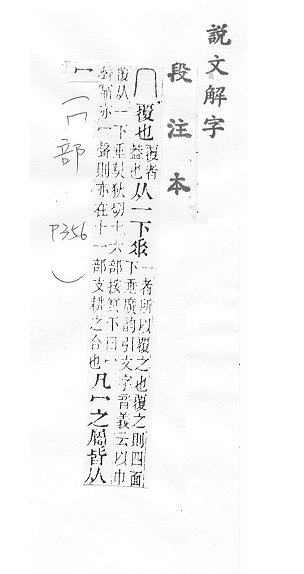 說文解字
段注本
冖覆也覆者葢也从一下𠂹一者所以覆之也覆之則四面下垂廣韵引文字音義云以巾
覆从一下垂莫狄切十六部按冥下曰冖聲鼏亦冖聲則亦在十一部支耕之合也凡冖之屬皆从
冖
（冖部 P356）